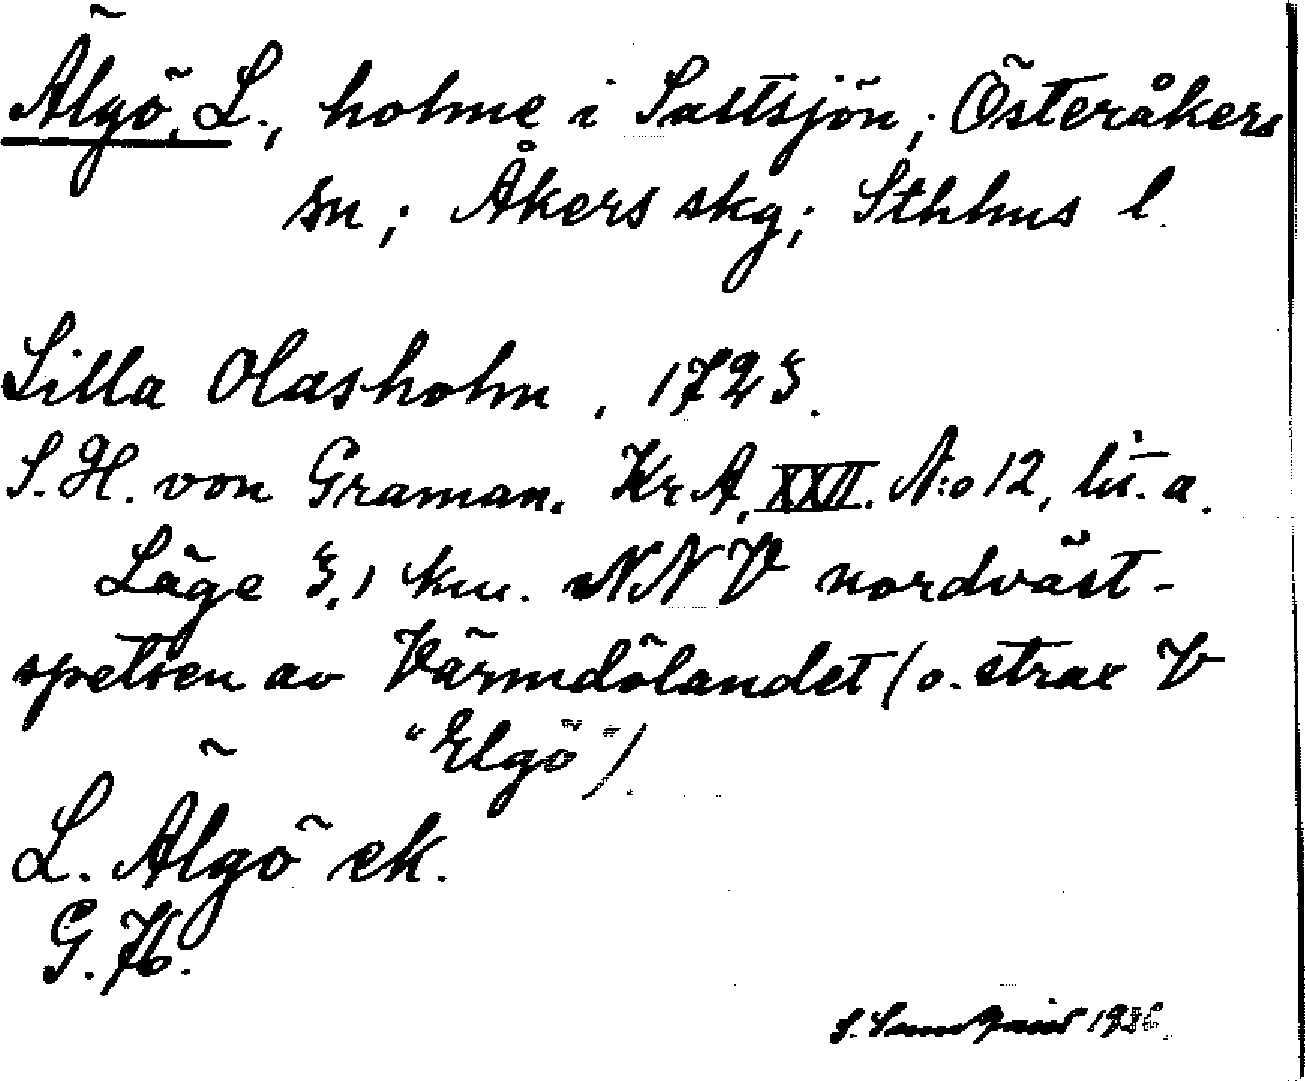 Älgö, L., holme i Saltsjön; Österåkers
sn; Åkers skg; Sthhus l.
Lilla Olasholm, 1723.
S. H. von Graman. Kr A, XXII. N:o 12, lit. a.
Läge 3,1 km. NNV nordväst-
spetsen av Värmdölandet (o. strax V
"Elgö").
L. Älgö ek.
G. K.
S. 1936.